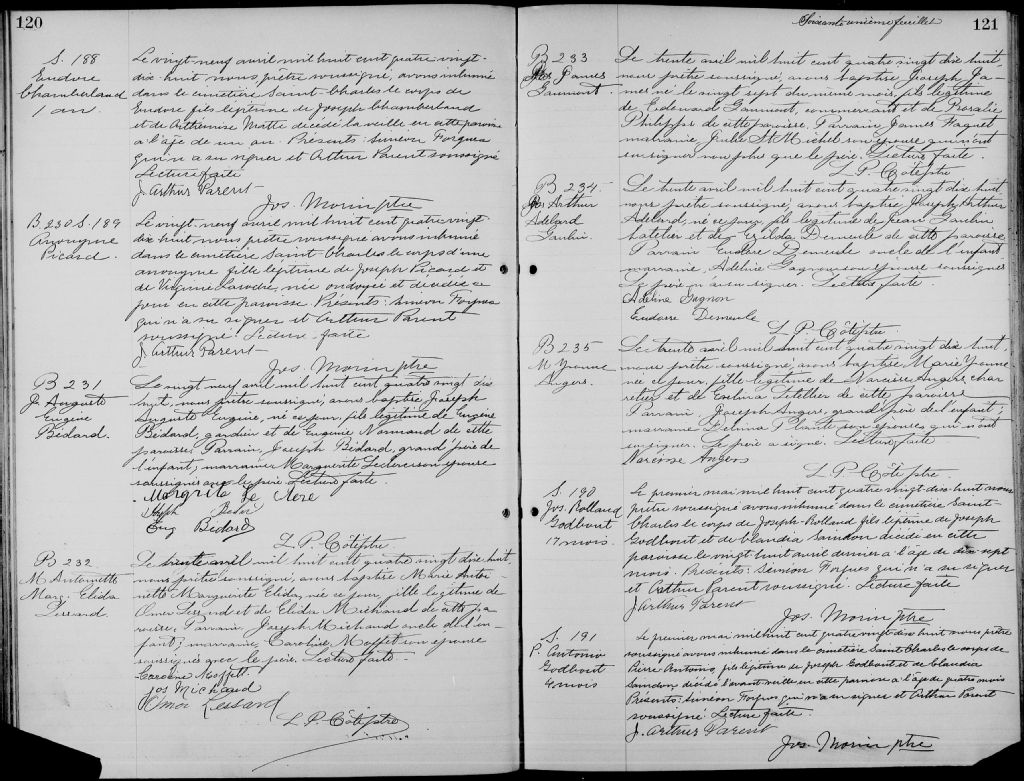 120
S. 188
Eudore
Chamberland
1 an
Le vingt-neuf avril mil huit cent quatre vingt-
dix-huit nous prêtre soussigné, avons inhumé
dans le cimetière Saint-Charles le corps de
Eudore fils légitime de Joseph Chamberland
et de Arthémise Matte décédé la veille en cette paroisse
à l'âge de un an. Présents: Siméon Forgues
qui n'a su signer et Arthur Parent soussigné
Lecture faite
J. Arthur Parent
Jos. Morin ptre
B. 230 S. 189
Anonyme
Picard.
Le vingt-neuf avril mil huit cent quatre vingt-
dix huit nous prêtre soussigné avons inhumé
dans le cimetière Saint-Charles le corps d'une
anonyme fille légitime de Joseph Picard et
de Virginie née ondoyée et décédée ce
jour en cette paroisse. Présents: Siméon Forgues
qui n'a su signer et Arthur Parent
soussigné. Lecture faite
J. Arthur Parent
Jos. Morin ptre
B 231
J. Auguste
Eugène
Bédard.
Le vingt neuf avril mil huit cent quatre vingt dix
huit, nous prêtre soussigné, avons baptisé Joseph
Auguste Eugène, né ce jour, fils légitime de Eugène
Bédard, gardien et de Eugénie Normand de cette
paroisse; Parrain, Joseph Bédard, grand'père de
l'enfant, marraine Marguerite Leclerc son épouse
soussignés avec le père. Lecture faite.
Margrite Le Clere
Joseph Bedar
Eug Bédard
L. P. Côté ptre
B 232
M Antoinette
Marg. Elida
Lessard.
Le trente avril mil huit cent quatre vingt dix huit,
nous prêtre soussigné, avons baptisé Marie Antoi-
nette Marguerite Elida, née ce jour, fille légitime de
Omer Lessard et de Elida Michaud de cette pa
roisse; Parrain, Joseph Michaud oncle de l'en-
fant; marraine, Caroline Moffet son épouse
soussignés avec le père. Lecture faite.
Caroline Moffett
Jos Michaud
Omer Lessard
L. P. Côté ptre
Soixante unième feuillet
121
B 233
Jos. James
Gaumont
Le trente avril mil huit cent quatre vingt dix huit,
nous prêtre soussigné, avons baptisé Joseph Ja-
mes né le vingt sept du même mois, fils légitime
de Edouard Gaumont, commerçant et de Rosalie
Philippe de cette paroisse. Parrain James Paquet
marraine Julie St Michel son épouse qui n'ont
su signer non plus que le père. Lecture faite.
L. P. Côté ptre
B 234
Jos Arthur
Adélard
Le trente avril mil huit cent quatre vingt dix huit
nous prêtre soussigné, avons baptisé Joseph Arthur
Adélard, né ce jour, fils légitime de Jean
et de Exilda Demeule de cette paroisse
Parrain Eudore Demeule oncle de l'enfant
marraine, Adeline Gagnon son épouse soussignés
Le père n'a su signer. Lecture faite.
Adéline Gagnon
Eudore Demeule
L. P. Côté ptre.
B 235
M Yvonne
Angers.
Le trente avril mil huit cent quatre vingt dix huit,
nous prêtre soussigné, avons baptisé Marie Yvonne
née ce jour, fille légitime de Narcisse Angers, char
retier et de Exilina Letellier de cette paroisse
Parrain, Joseph Angers, grand père de l'enfant;
marraine Delvina Plante son épouse, qui n'ont
su signer. Le père a signé. Lecture faite
Narcisse Angers
L. P. Côté ptre.
S. 190
Jos. Rolland
Godbout
17 mois.
Le premier mai mil huit cent quatre vingt dix-huit nous
prêtre soussigné avons inhumé dans le cimetière Saint-
Charles le corps de Joseph-Rolland fils légitime de Joseph
Godbout et de Claudia Samson décédé en cette
paroisse le vingt huit avril dernier à l'âge de dix sept
mois. Présents: Siméon Forgues qui n'a su signer
et Arthur Parent soussigné. Lecture faite
J. Arthur Parent
Jos. Morin ptre
S. 191
P. Antonio
Godbout
4 mois
Le premier mai mil huit cent quatre vingt-dix huit nous prêtre
soussigné avons inhumé dans le cimetière Saint Charles le corps de
Pierre Antonio, fils légitime de Joseph Godbout et de Claudia
Samson, décédé l'avant-veille en cette paroisse à l'âge de quatre mois
Présents: Siméon Forgues qui n'a su signer et Arthur Parent
soussigné. Lecture faite.
J. Arthur Parent
Jos. Morin ptre